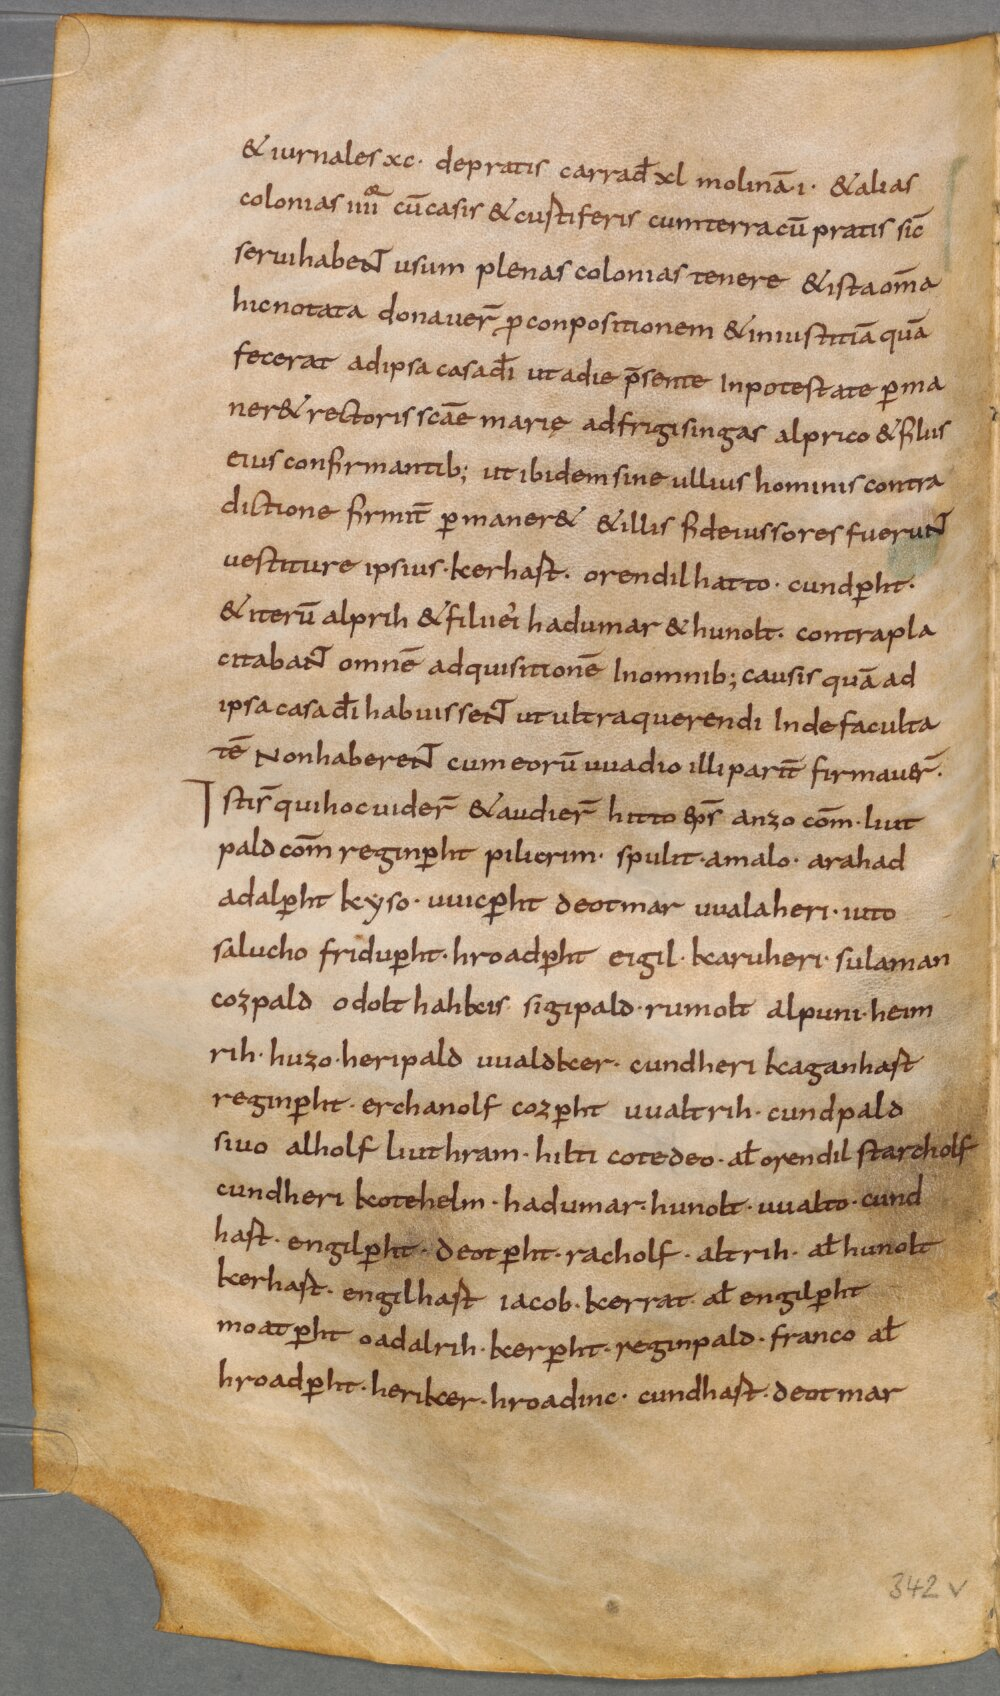 & iurnales xc· de pratis carrad̄ xl molinā·i· & alias
colonias iiii cū casis & custiferis cum terra cū pratis sic̄
serui habent usum plenas colonias tenere & ista om̄a
hic notata donauer̄ ꝓ conpositionem & iniustitiā quā
fecerat ad ipsa casa dī ut a die p̄sente In potestate ꝑma
ner& rectoris sc̄ae marię ad frigisingas alprico & filiis
eius confirmantib; ut ibidem sine ullius hominis contra
dictione firmit̄ ꝑmaner& & illis fideiussores fuerunt
uestiture ipsius· kerhast· orendil hatto· cundꝑht·
& iterū alprih & filii ei hadumar & hunolt· contrapla
citabant omnē adquisitionē In omnib; causis quā ad
ipsa casa dī habuissent ut ultra querendi Inde faculta
tē Non haberent cum eorū uuadio illi parit̄ firmauer̄·
Istis̄ qui hoc uider̄ & audier̄ hitto ep̄s anzo com̄· liut
pald com̄ reginꝑht pilicrim· spulit· amalo· arahad
adalꝑht kyso· uuicꝑht deotmar uualaheri· uto
salucho friduꝑht· hroadꝑht eigil· karuheri· sulaman
cozpald odolt hahkis sigipald· rumolt alpuni· heim
rih· huzo· heripald uualdker· cundheri kaganhast
reginꝑht· erchanolf cozꝑht uualtrih· cundpald
siuo alholf liuthram· hilti cotedeo· al̄ orendil starcholf
cundheri kotehelm· hadumar· hunolt· uualto· cund
hast· engilꝑht· deotꝑht· racholf· altrih· al̄ hunolt
kerhast· engilhast iacob· kerrat· al̄ engilꝑht
moatꝑht oadalrih· kerꝑht· reginpald· franco al̄
hroadꝑht· heriker· hroadinc· cundhast· deotmar
342 v